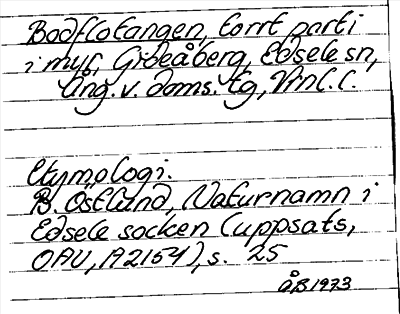 Bodflotangen, torrt parti
i myr, Gideåberg, Edsele sn,
Ång. v. doms. tg, Vnl. l.
Etymologi.
B. Östlund, Naturnamn i
Edsele socken (uppsats,
OAU, A2154), s. 25
ÅB 1973